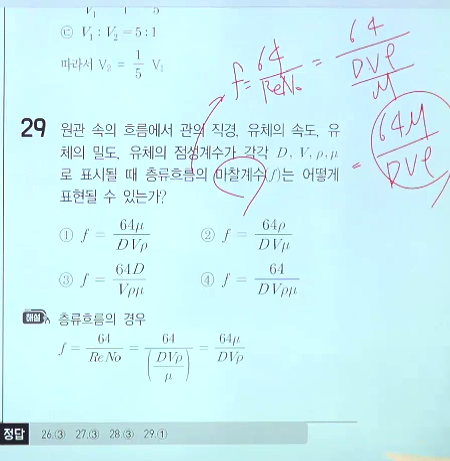 V₁ 1 5
㉢ V₁ : V₂ = 5 : 1
따라서 V₂ = 1/5 V₁
f = 64/ReNo = 64/(DVρ/μ)
= 64μ/DVρ
29 원관 속의 흐름에서 관의 직경, 유체의 속도, 유
체의 밀도, 유체의 점성계수가 각각 D, V, ρ, μ
로 표시될 때 층류흐름의 마찰계수(f)는 어떻게
표현될 수 있는가?
① f = 64μ/DVρ ② f = 64ρ/DVμ
③ f = 64D/Vρμ ④ f = 64/DVρμ
해설 층류흐름의 경우
f = 64/ReNo = 64/(DVρ/μ) = 64μ/DVρ
정답 26.③ 27.③ 28.③ 29.①